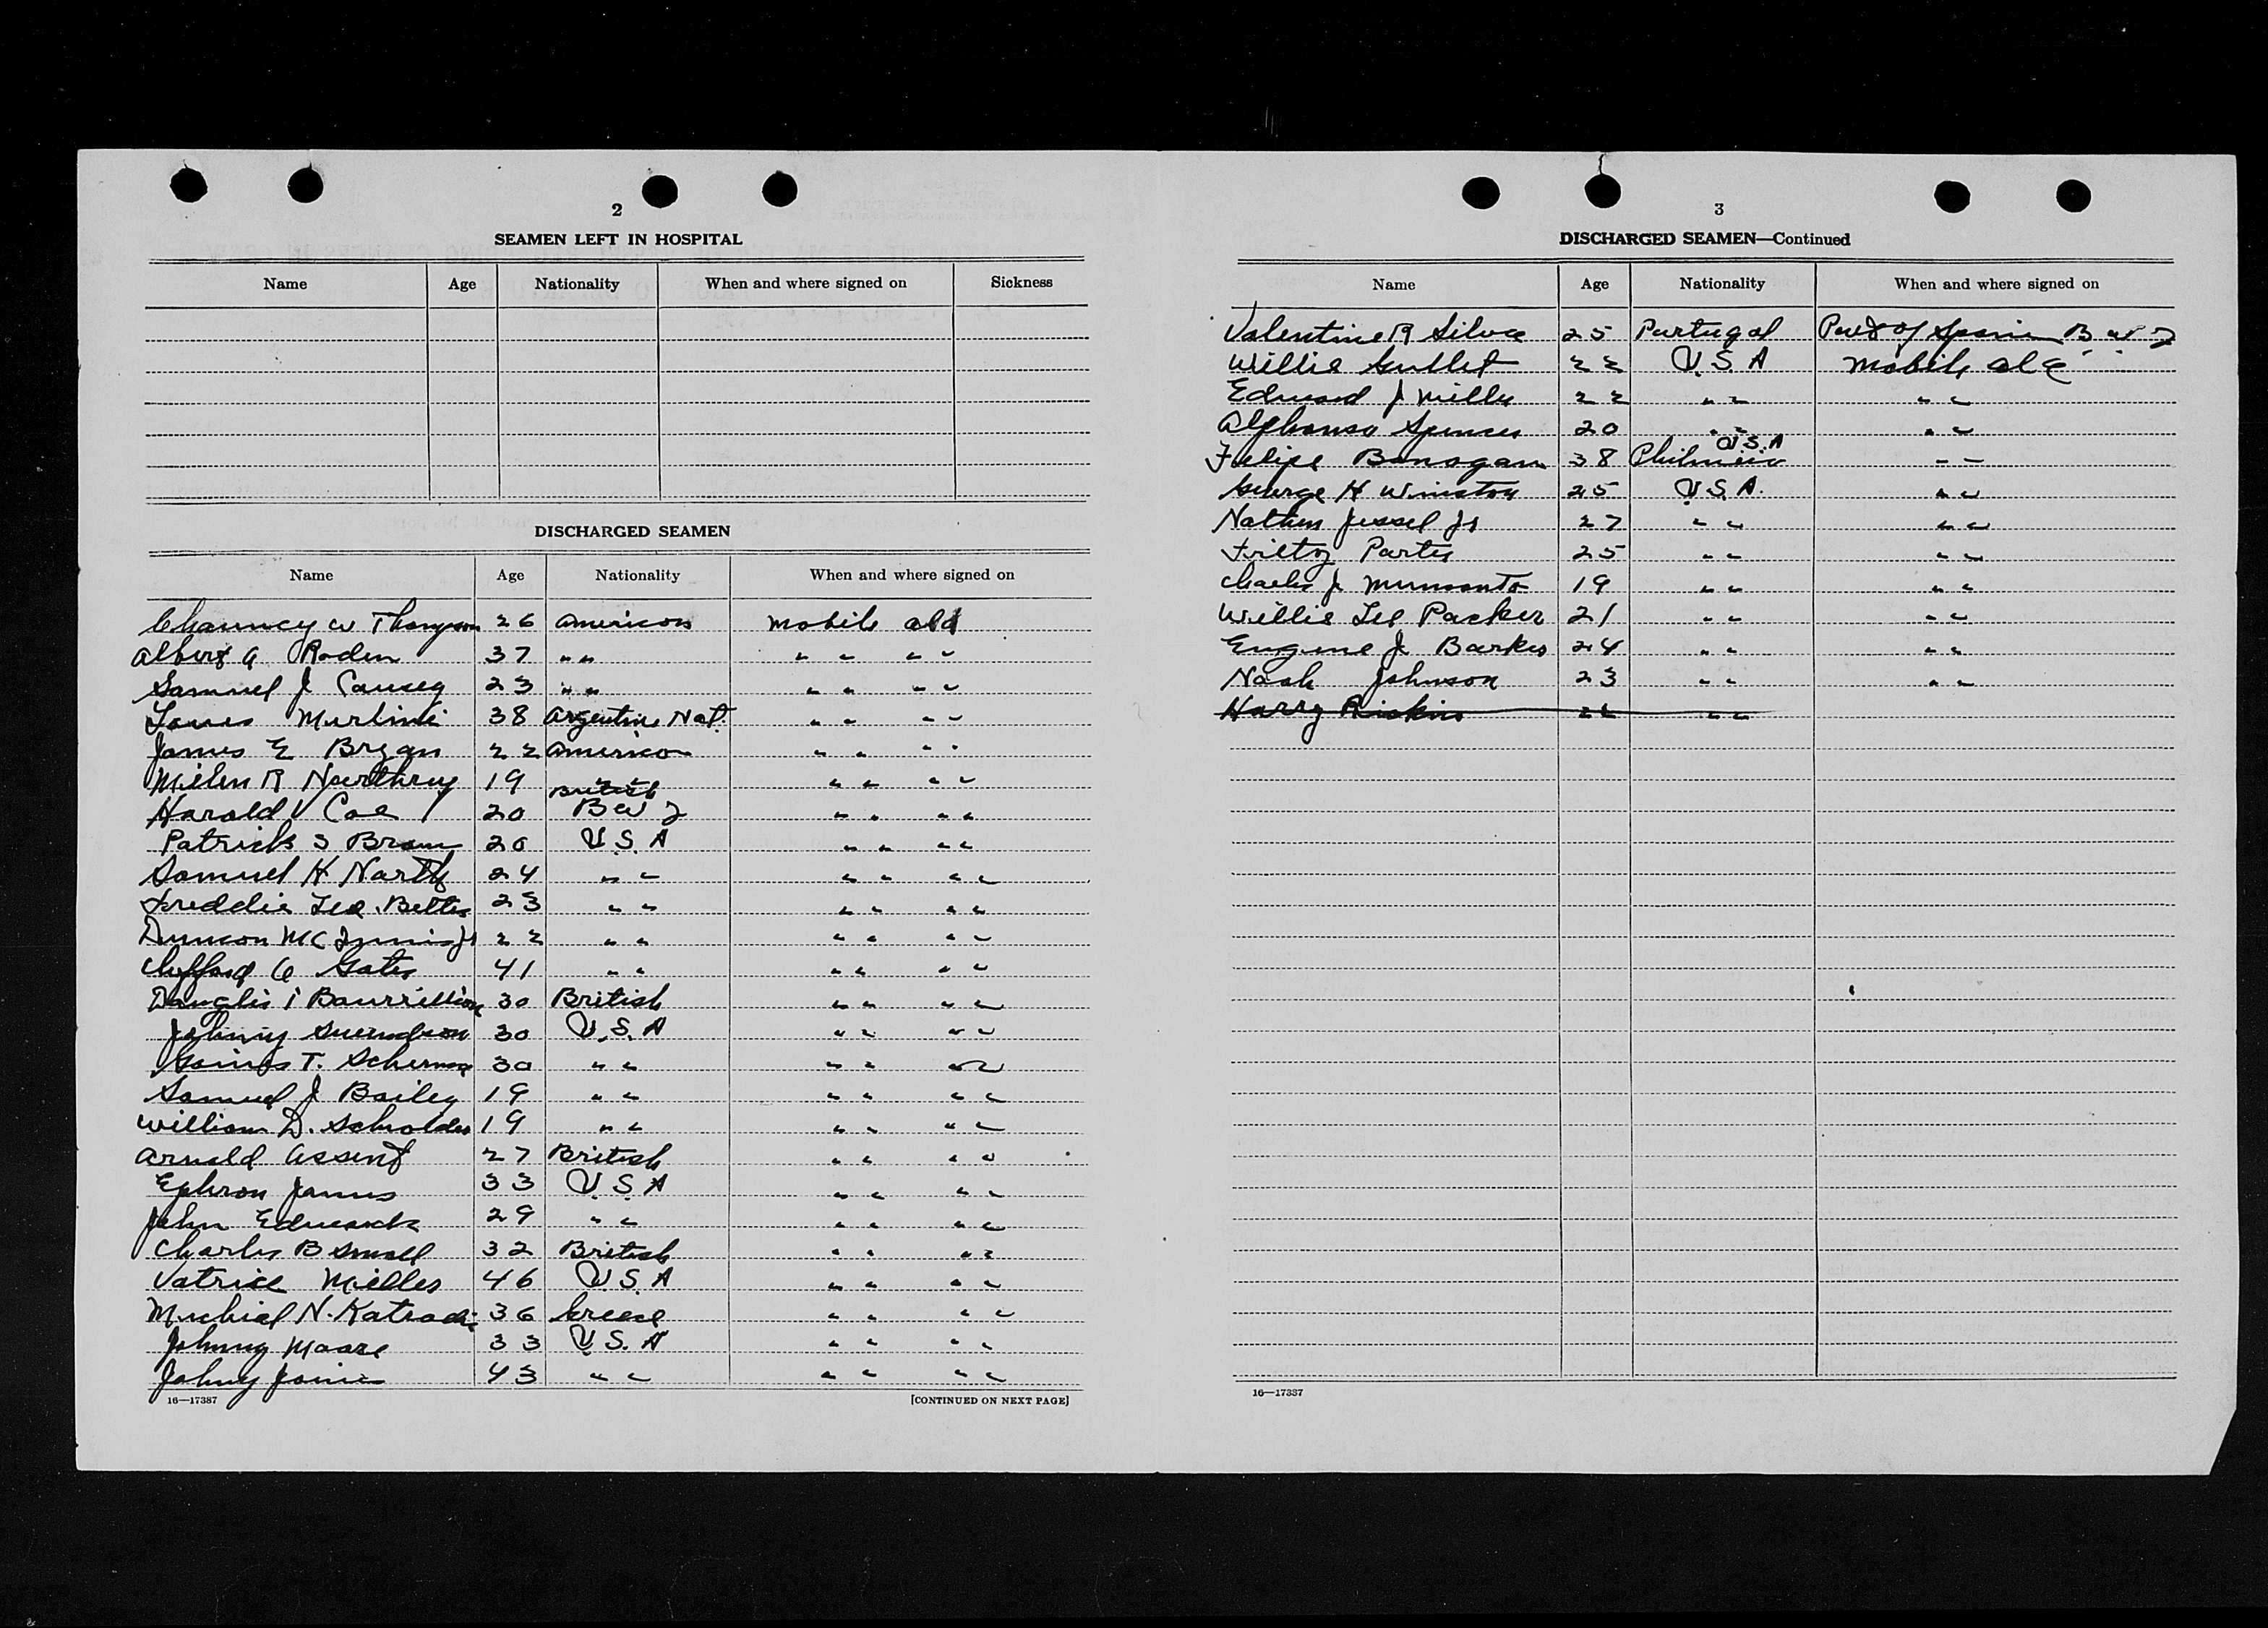 2
SEAMEN LEFT IN HOSPITAL
Name Age Nationality When and where signed on Sickness
DISCHARGED SEAMEN
Name Age Nationality When and where signed on
Chauncey W Thompson 26 American Mobile ala
Albert A Roden 37 " " " " " "
Samuel J Causey 23 " " " " " "
Louis Murlini 38 Argentine Nat. " " " "
James E Bryan 22 American " " " "
R Northrup 19 " " " " " "
British
Harold V Coe 20 B W I " " " "
Patrick S Brown 20 U.S.A " " " "
Samuel H North 24 " " " " " "
Freddie Lee Bettis 23 " " " " " "
Duncan McInnis Jr 22 " " " " " "
Clifford C Gates 41 " " " " " "
Douglis I 30 British " " " "
Johnny 30 U.S.A " " " "
T. 30 " " " " " "
Samuel J Bailey 19 " " " " " "
William D. 19 " " " " " "
Arnold Assent 27 British " " " "
Ephron James 33 U.S.A " " " "
John 29 " " " " " "
Charles B Small 32 British " " " "
Milles 46 U.S.A " " " "
N. 36 Greece " " " "
Johnny Moore 33 U.S.A " " " "
Johny 43 " " " " " "
16—17387 [CONTINUED ON NEXT PAGE]
3
DISCHARGED SEAMEN—Continued
Name Age Nationality When and where signed on
Valentine R Silva 25 Portugal Port of Spain B W I
Willie Gullet 22 U.S.A Mobile ala
Edward J Miller 22 " " " "
Alphonso Spences 20 " " " "
U.S.A
Felipe Bonogan 38 " "
George H Winston 25 U.S.A. " "
Nathen Jessel Jr 27 " " " "
25 " " " "
Charles J 19 " " " "
Willie Lee Packer 21 " " " "
Eugene J Barker 24 " " " "
Nash Johnson 23 " " " "
Harry 22 " "
16—17387